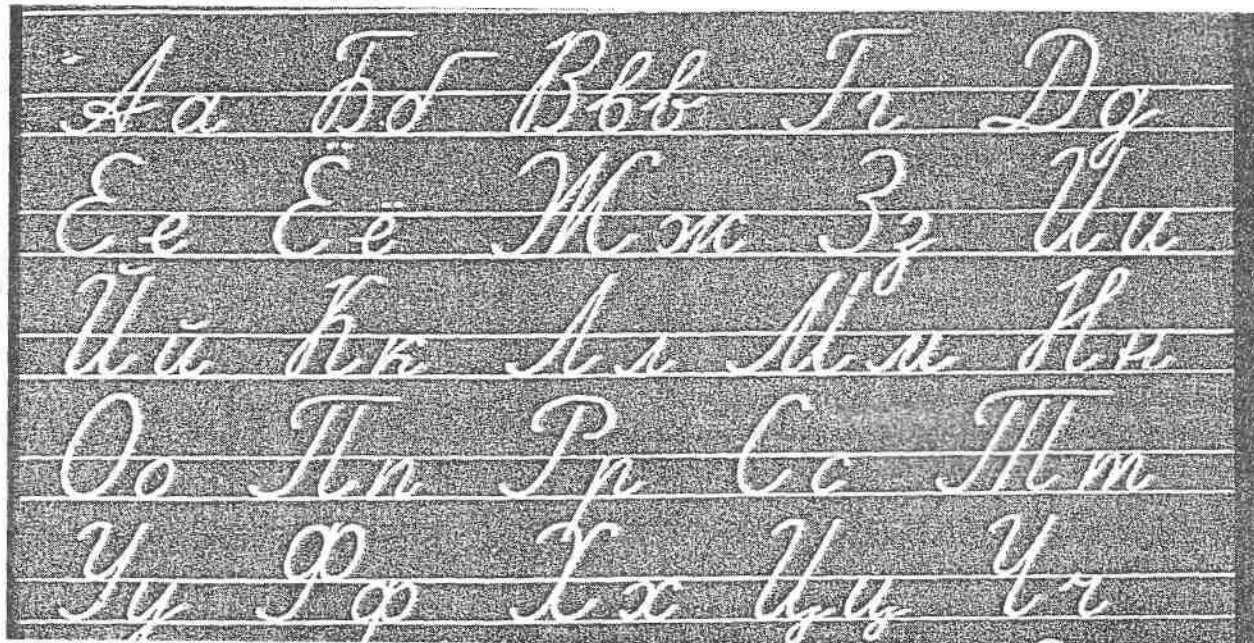 Аа Бб Ввв Гг Дд
Ее Ёё Жж Зз Ии
Йй Кк Лл Мм Нн
Оо Пп Рр Сс Тт
Уу Фф Хх Цц Чч